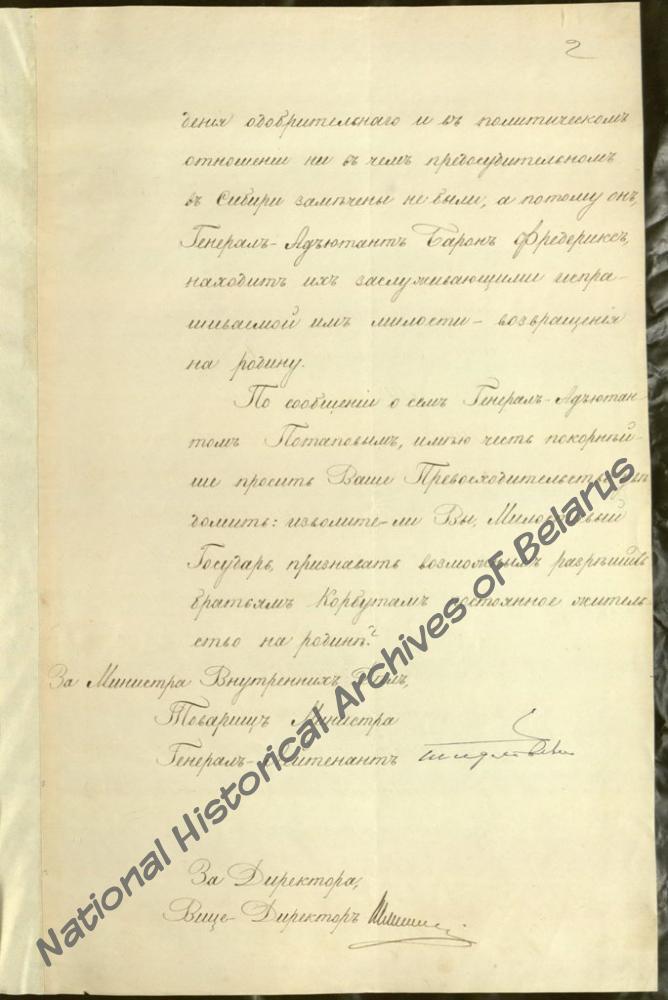 2
денія одобрительнаго и въ политическомъ
отношеніи ни въ чемъ предосудительномъ
въ Сибири замѣчены не были, а потому онъ,
Генералъ-Адъютантъ Баронъ Фредериксъ,
находитъ ихъ заслуживающими испра-
шиваемой имъ милости - возвращенія
на родину.
По сообщеніи о семъ Генералъ-Адъютан-
томъ Потаповымъ, имѣю честь покорнѣй-
ше просить Ваше Превосходительство увѣ-
домить: изволите-ли Вы, Милостивый
Государь, признавать возможнымъ разрѣшить
братьямъ Корбутамъ постоянное житель-
ство на родинѣ?
За Министра Внутреннихъ Дѣлъ,
Товарищъ Министра
Генералъ-Лейтенантъ
За Директора,
Вице-Директоръ
National Historical Archives of Belarus